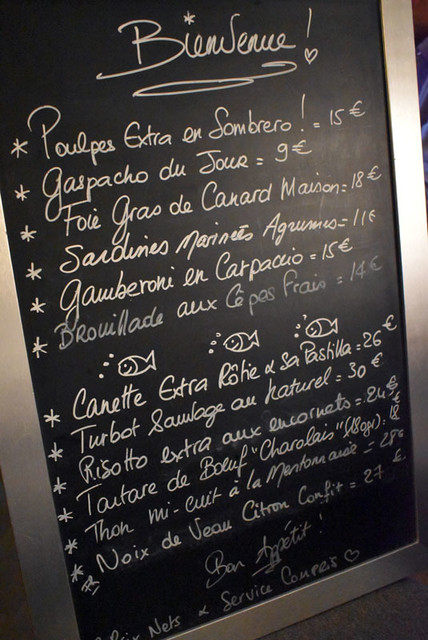 Bienvenue !
* Poulpes Extra en Sombrero ! = 15 €
* Gaspacho du Jour = 9 €
* Foie Gras de Canard Maison = 18 €
* Sardines Marinées Agrumes = 11 €
* Gamberoni en Carpaccio = 15 €
* Brouillade aux Cêpes Frais = 14 €
* Canette Extra Rôtie & sa Pastilla = 26 €
* Turbot Sauvage au Naturel = 30 €
* Risotto extra aux encornets = 24 €
* Tartare de Bœuf "Charolais" (180gr) = 18
* Thon mi-cuit à la Mentonnaise = 28 €
* Noix de Veau Citron Confit = 27 €
Bon Appétit !
Prix Nets & Service Compris